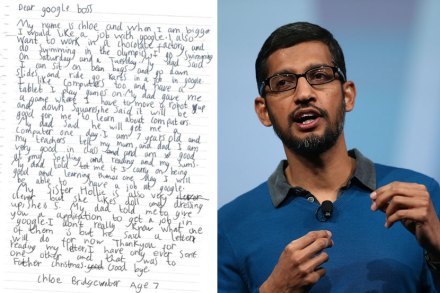 Dear google boss
My name is Chloe and when I am bigger
I would like a job with google. I also
want to work in a chocolate factory and
do swimming in the olympics. I go swimming
on Saturday and a Tuesday. My dad said
I can sit on bean bags and go down
slides and ride go karts in a job in google.
I like computers too and have a
tablet I play games on. My dad gave me
a game where I have to move a robot up
and down squares, he said it will be
good for me to learn about computers.
My dad said he will get me a
computer one day. I am 7 years old and
my teachers tell my mum and dad I am
very good in class and am good
at my spelling and reading and my sums.
my dad told me if I carry on being
good and learning then one day I will
be able to have a job at google.
My sister Hollie is also very
clever but she likes doll very dressing
up she is 5. My dad told me to give
you a application to get a job in
google. I don't really know what one
of them is but he said a letter
will do for now. Thankyou for
reading my letter. I have only ever sent
one other and that was to
Father christmas. Good bye.
Chloe Bridgewater Age 7